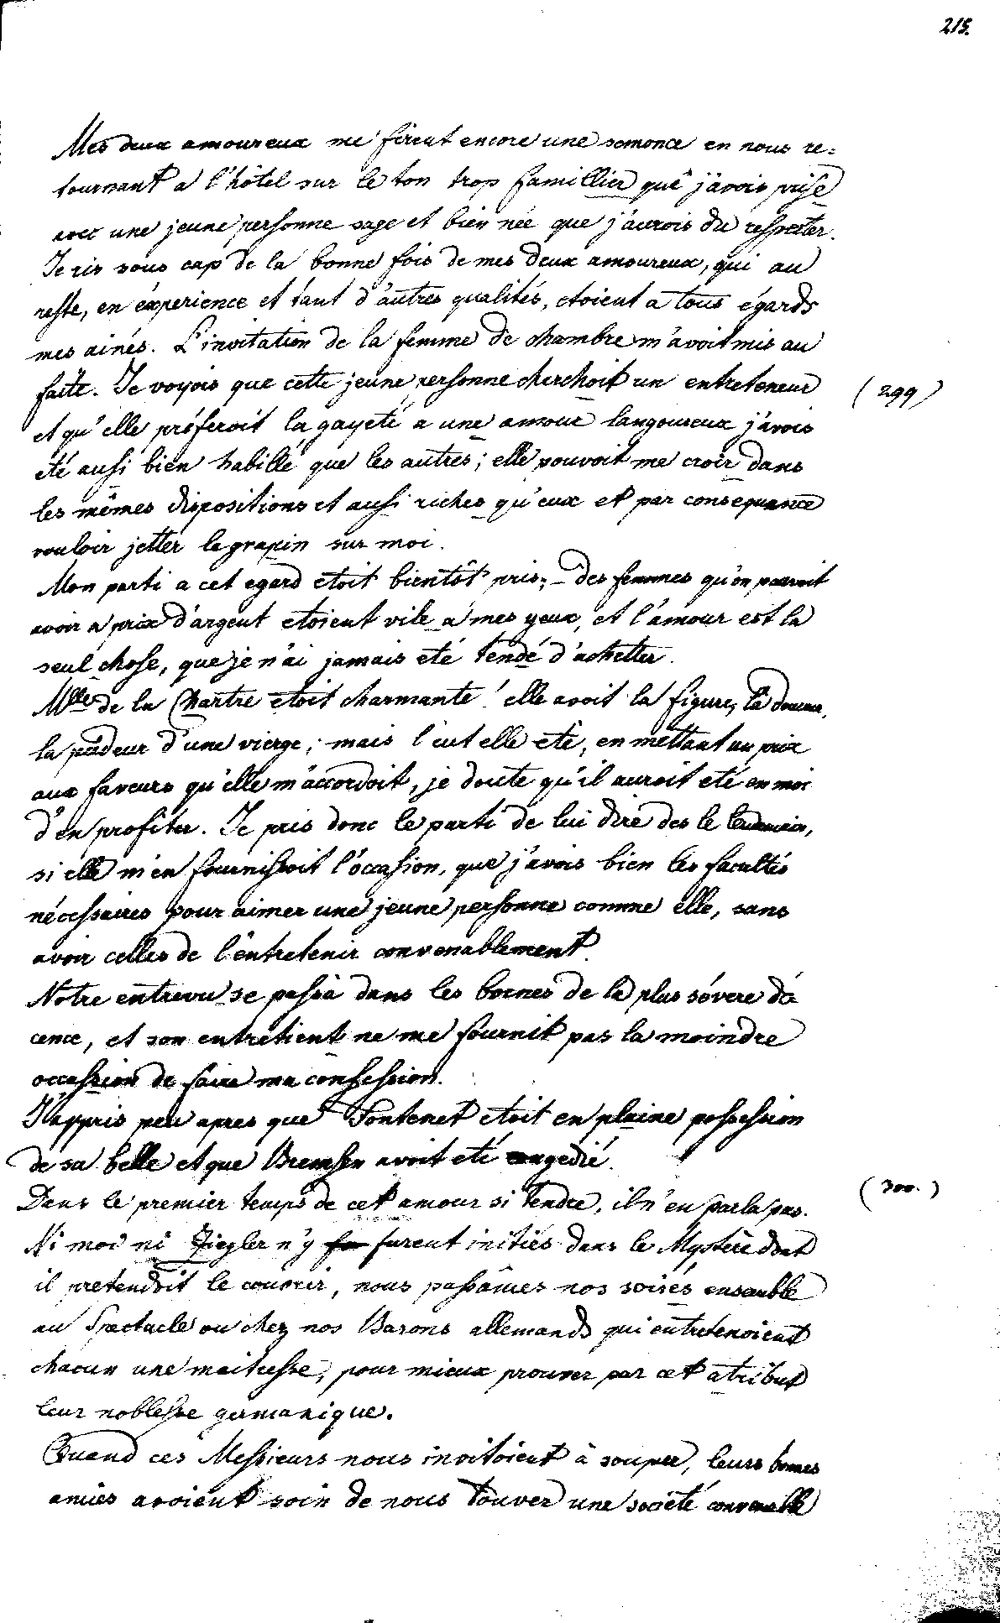 215.
Mes deux amoureux me firent encore une semonce en nous re=
tournant a l'hôtel sur le ton trop famillier que j'avois prise
avec une jeune personne sage et bien née que j'aurois du respecter.
Je ris sous cap de la bonne fois de mes deux amoureux, qui au
reste, en éxperience et tant d'autres qualités, etoient a tous égards
mes ainés. L'invitation de la femme de chambre m'avoit mis au
faite. Je voyois que cette jeune personne cherchoit un entreteneur
(299)
et qu'elle préferoit la gayeté a une amour langoureux j'avois
été aussi bien habillé que les autres; elle pouvoit me croir dans
les mêmes dispositions et aussi riches qu'eux et par consequance
vouloir jetter le grapin sur moi.
Mon parti a cet egard etoit bientôt pris; — des femmes qu'on pouvoit
avoir a prix d'argent etoient vile a mes yeux, et l'amour est la
seul chose, que je n'ai jamais eté tendé d'achetter.
Mlle de la Chartre etoit charmante! elle avoit la figure, la douceur,
la pudeur d'une vierge; mais l'eut elle eté, en mettant un prix
aux faveurs qu'elle m'accordoit, je doute qu'il auroit eté en moi
d'en profiter. Je pris donc le parti de lui dire des le lendemain,
si elle m'en fournissoit l'occasion, que j'avois bien les facultés
nécessaires pour aimer une jeune personne comme elle, sans
avoir celles de l'entretenir convenablement.
Notre entrevu se passa dans les bornes de la plus sévere dé
cence, et son entretient ne me fournit pas la moindre
occassion de faire ma confession.
J'appris peu apres que Fontenet etoit en plaine possession
de sa belle et que Bremsen avoit eté congedié.
Dans le premier temps de cet amour si tendre, il n'en parla pas.
(300.)
Ni moi ni Ziegler n'y fu furent initiés dans le Mystère dont
il pretendoit le couvrir, nous passâmes nos soirés ensemble
au Spectacle ou chez nos Barons allemands qui entretenoient
chacun une maitresse, pour mieux prouver par cet atribut
leur noblesse germanique.
Quand ces Messieurs nous invitoient à souper, leurs bonnes
amies avoient soin de nous touver une societé convenable